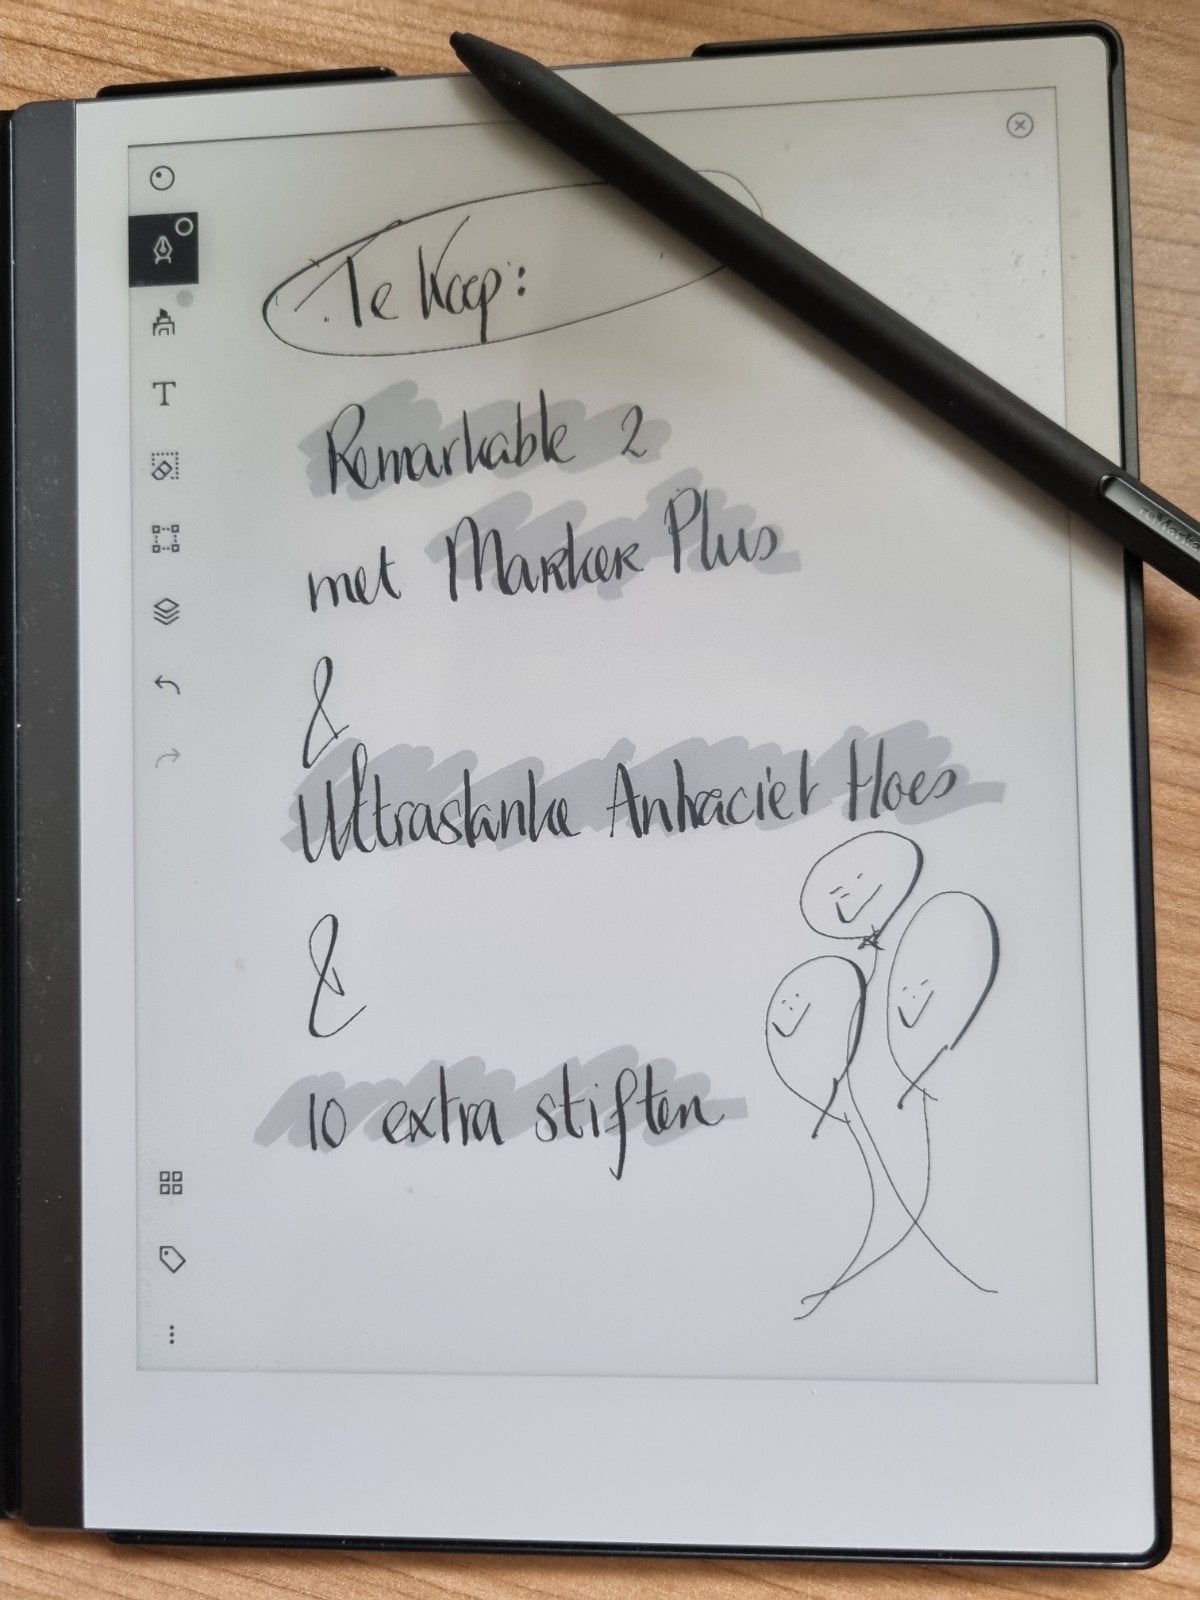 Te Koop:
Remarkable 2
met Marker Plus
&
Ultraslanke Antraciet Hoes
&
10 extra stiften
T
reMarka